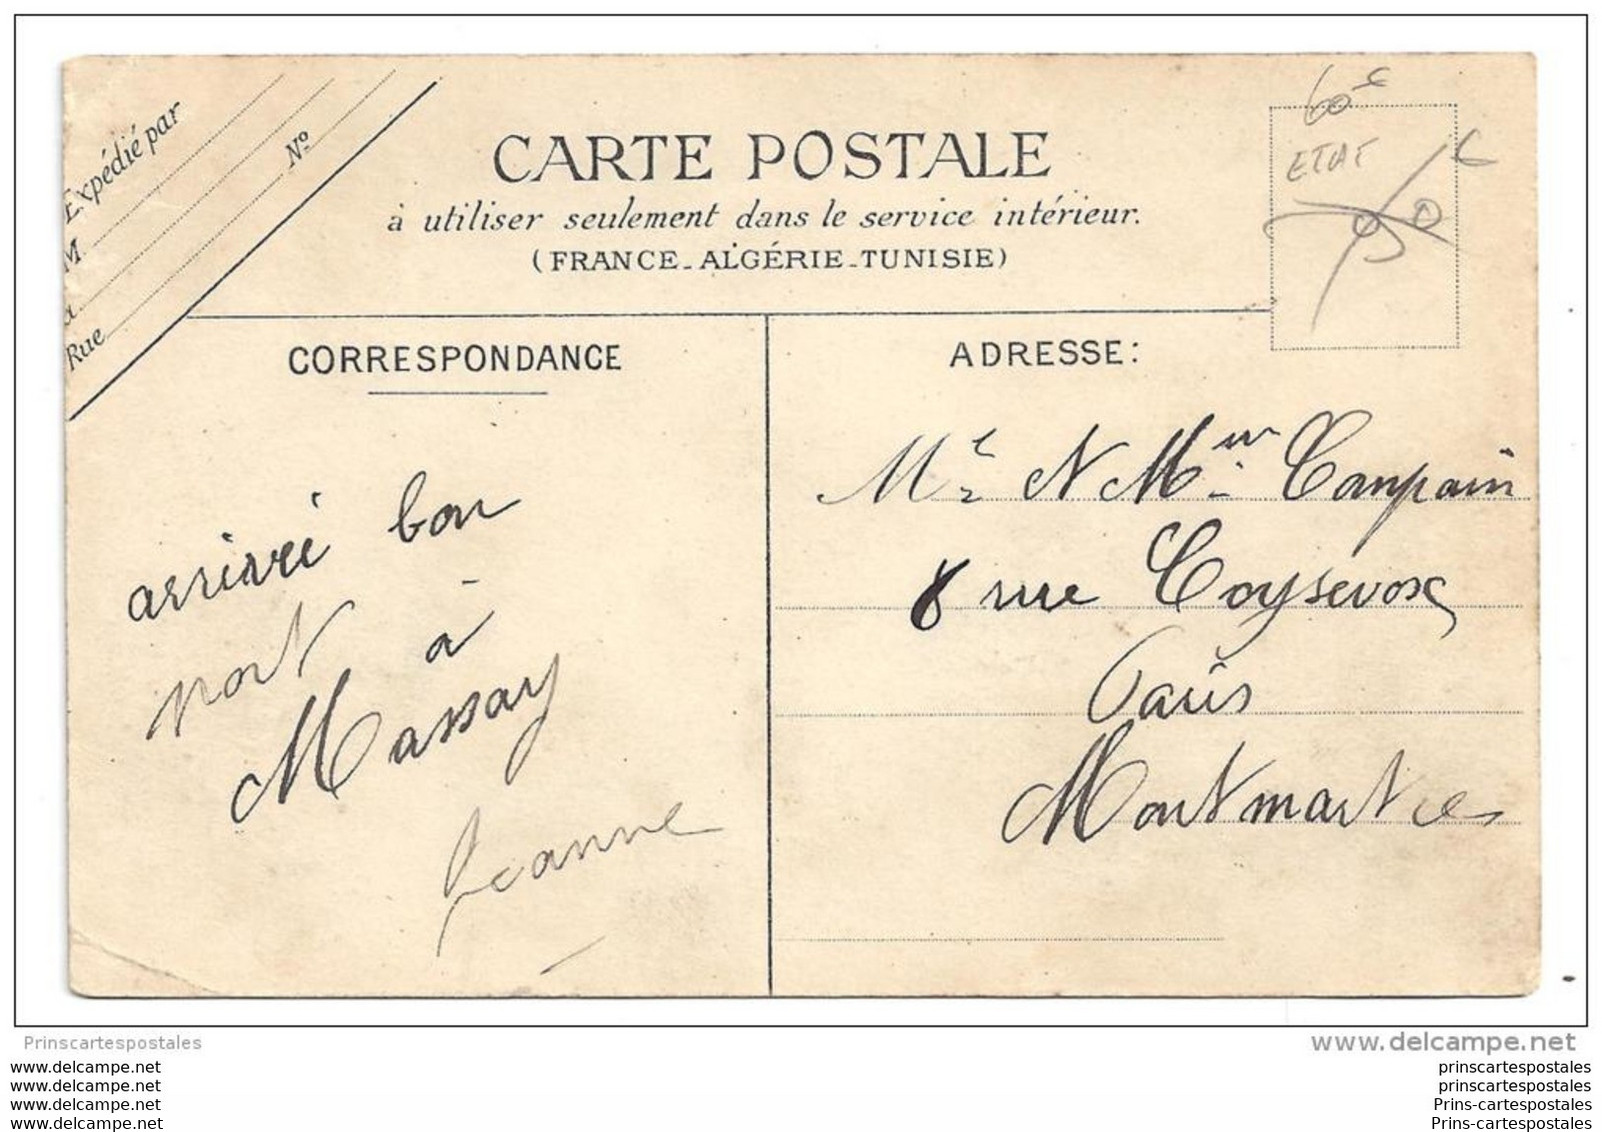 Expédié par
M
à
Rue
N°
CARTE POSTALE
à utiliser seulement dans le service intérieur.
(FRANCE-ALGÉRIE-TUNISIE)
60 €
ETAT
CORRESPONDANCE
ADRESSE:
arrivé bon
port à
Massay
Jeanne
Mr N Mme Campain
8 rue Coysevox
Paris
Montmartre
Prinscartespostales
www.delcampe.net
www.delcampe.net
www.delcampe.net
www.delcampe.net
www.delcampe.net
prinscartespostales
prinscartespostales
Prins-cartespostales
Prins-cartespostales